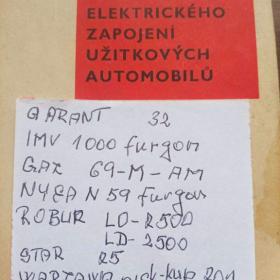 ELEKTRICKÉHO
ZAPOJENÍ
UŽITKOVÝCH
AUTOMOBILŮ
GARANT 32
IMV 1000 furgon
GAZ 69-M-AM
NYSA N 59 furgon
ROBUR LO-2500
LD-2500
STAR 25
WARZAWA pick-kup 201